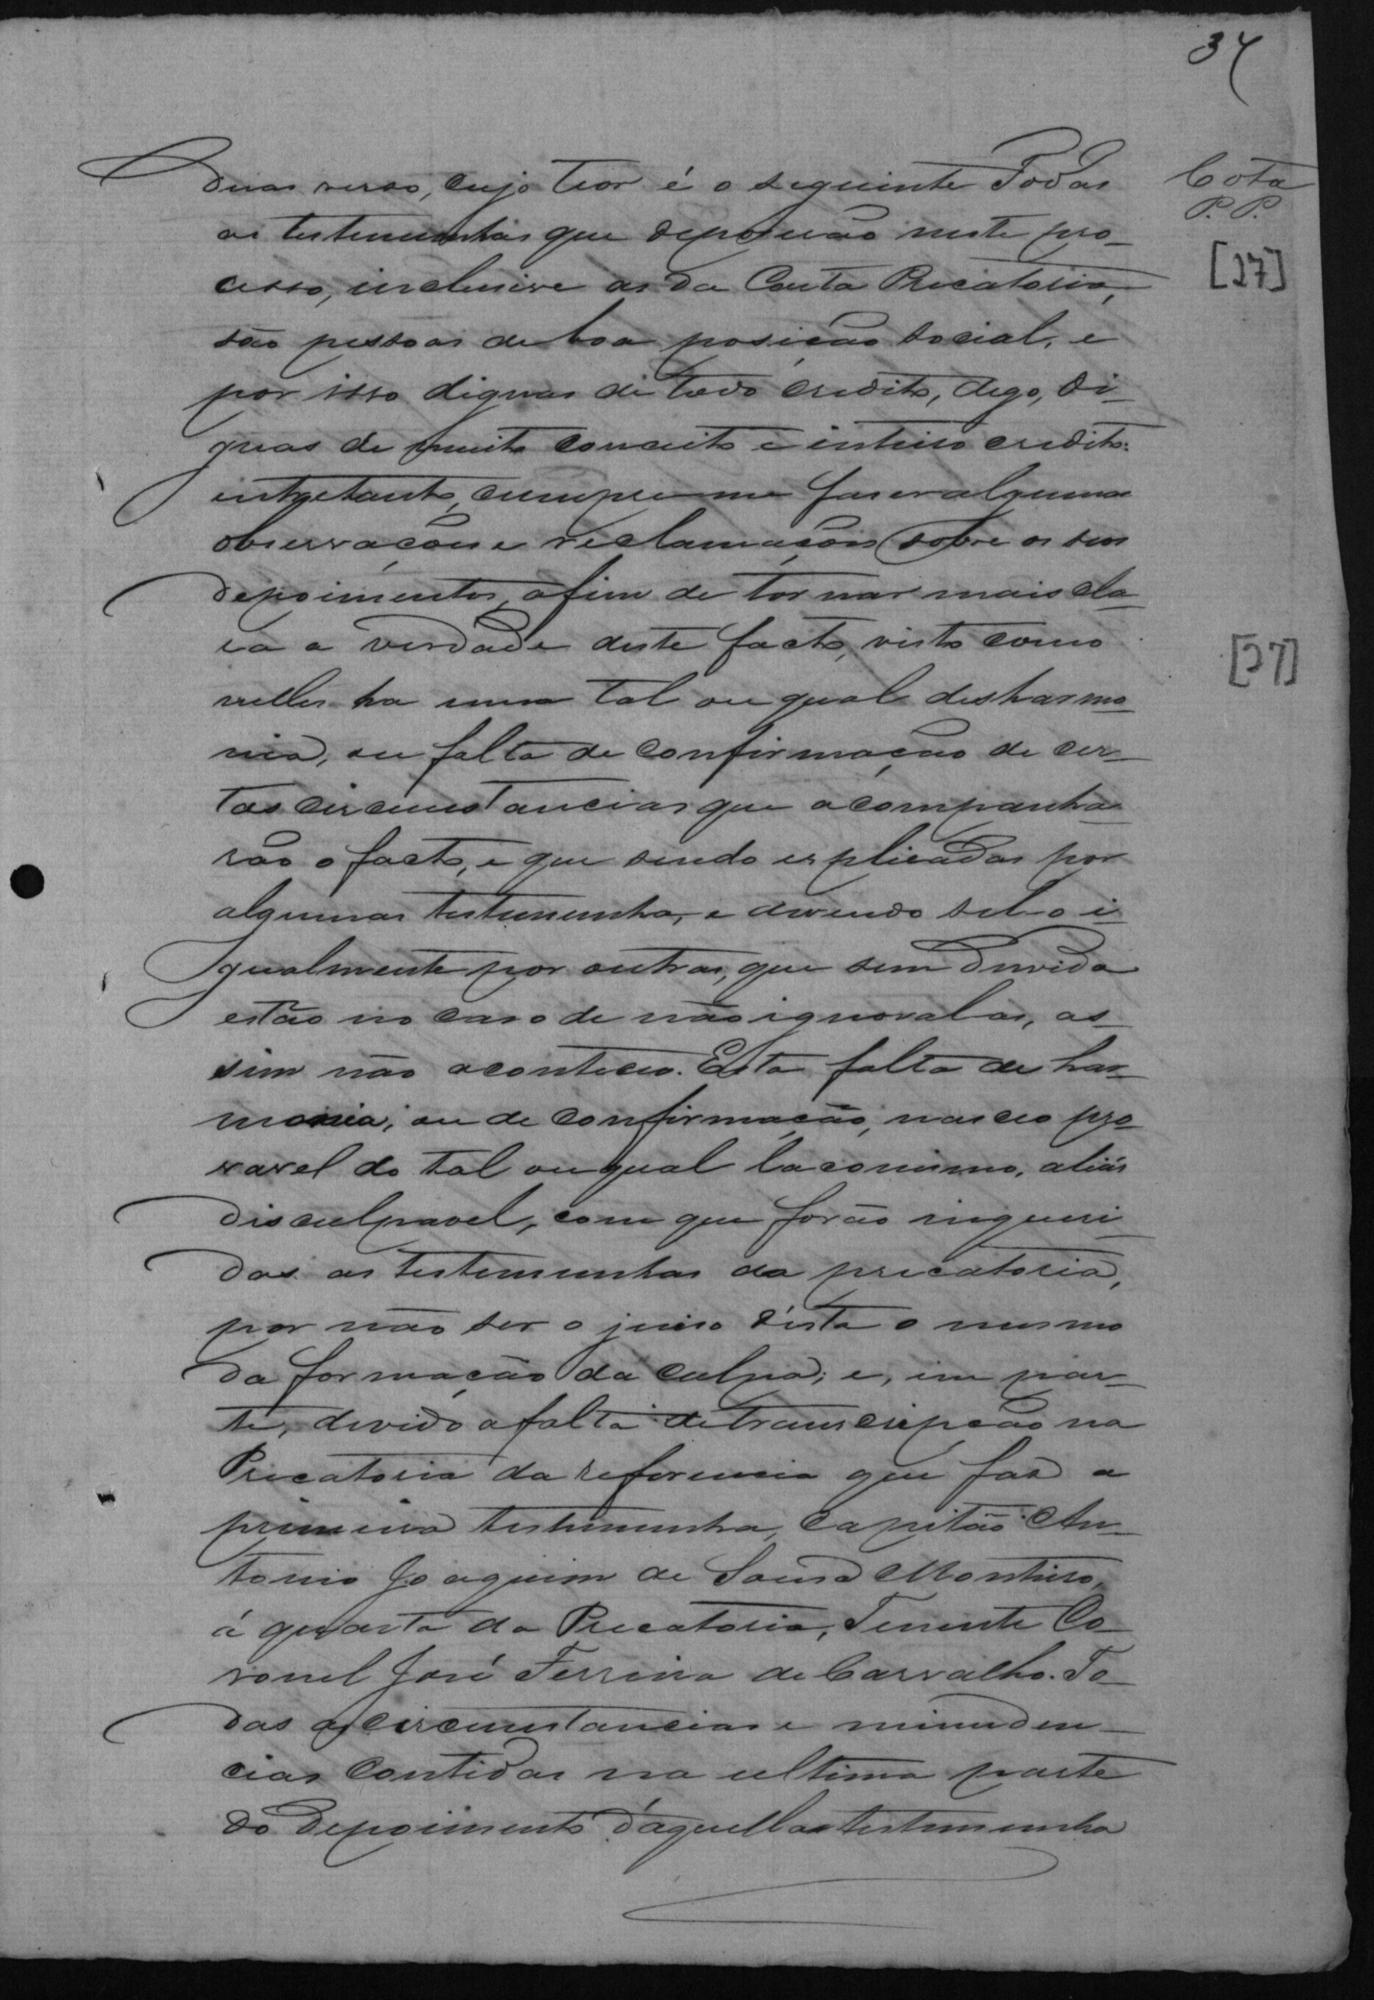 37
Cota
P. P.
[27]
duas verso, cujo teor é o seguinte Todas
as testemunhas que depuserão neste pro-
cesso, inclusive as da Carta Precatoria,
são pessoas de boa posição social, e
por isso dignas de todo credito, digo, di-
gnas de muito conceito e inteiro credito:
entretanto, cumpre me faser algumas
observações e reclamações sobre os seus
depoimentos, afim de tornar mais cla-
ra a verdade deste facto, visto como
nelles ha uma tal ou qual desharmo-
nia, ou falta de confirmação de cer-
tas circumstancias que acompanha-
rão o facto, e que sendo explicadas por
algumas testemunha, e devendo sel-o i-
gualmente por outras, que sem duvida
estão no caso de não ignoralas, as-
sim não aconteceo. Esta falta de har-
monia, ou de confirmação, nasceo pro-
vavel do tal ou qual laconismo, aliás
disculpavel, com que forão inqueri-
das as testemunhas da precatoria,
por não ser o juiso d'esta o mesmo
da formação da culpa; e, em par-
te, devido a falta de transcripção na
Precatoria da referencia que faz a
primeira testemunha, Capitão An-
tonio Joaquim de Sousa Monteiro,
á quarta da Precatoria, Tenente Co-
ronel José Ferreira de Carvalho. To-
das as circumstancias e minuden-
cias contidas na ultima parte
do depoimento d'aquella testemunha
[27]